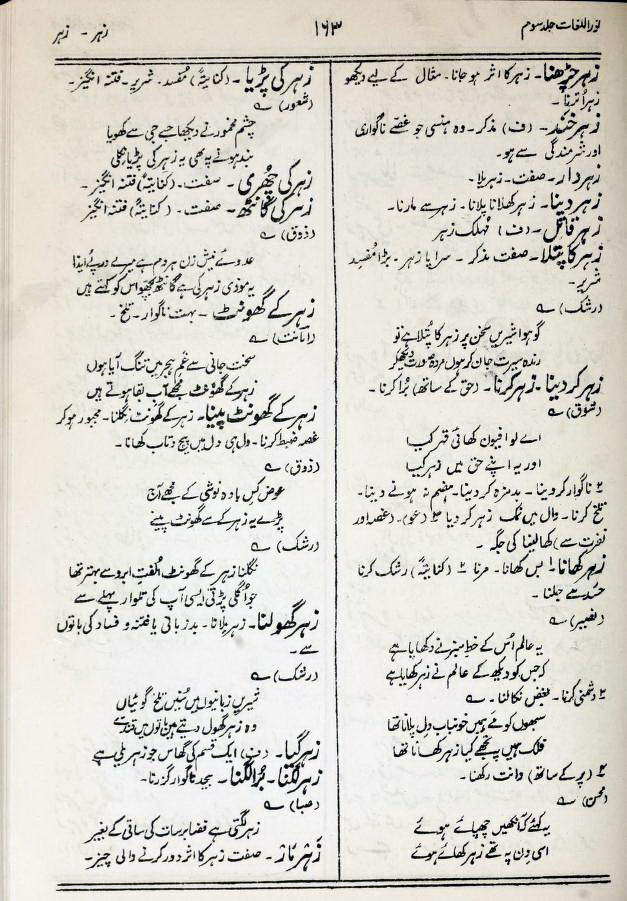 نور اللغات جلد سوم
۱۶۳
زہر - زہر
زہر چڑھنا۔ زہر کا اثر ہو جانا۔ مثال کے لیے دیکھو
زہر اُترنا۔
زہر خند۔ (ف) مذکر۔ وہ ہنسی جو غصے ناگواری
اور شرمندگی سے ہو۔
زہر دار۔ صفت۔ زہریلا۔
زہر دینا۔ زہر کھلانا پلانا۔ زہر سے مارنا۔
زہر قاتل۔ (ف) مُہلک زہر
زہر کا پتلا۔ صفت مذکر۔ سراپا زہر۔ بڑا مُفسد
شریر۔
(رشک) ؎
گو ہوا شیریں سخن پر زہر کا پُتلا ہے تو
زندہ سیرت جان کر مُردہ صورت دیکھکر
زہر کر دینا۔ زہر کرنا۔ (حق کے ساتھ) بُرا کرنا۔
(شوق) ؎
اے لو افیون کھائی قہر کیا
اور یہ اپنے حق میں زہر کیا
۲ ناگوار کر دینا۔ بدمزہ کر دینا۔ ہضم نہ ہونے دینا۔
تلخ کرنا۔ دال میں نمک زہر کر دیا ۳ (عو)۔ (غصہ اور
نفرت سے) کھا لینا کی جگہ۔
زہر کھانا۔ ۱ بس کھانا۔ مرنا ۲ (کنایتہً) رشک کرنا
حسد سے جلنا۔
(نصیر) ؎
یہ عالم اُس کے خط سبز نے دکھایا ہے
کہ جس کو دیکھ کے عالم نے زہر کھایا ہے
۳ دشمنی کرنا۔ بغض نکالنا۔ ؎
سبھوں کو مے ہمیں خونناب دل پلانا تھا
فلک ہمیں پہ تجھے کیا زہر کھانا تھا
۴ (پر کے ساتھ) دانت رکھنا۔
(محسن) ؎
یہ کہئے کہ آنکھیں چھپائے ہوئے
اسی دن پہ تھے زہر کھائے ہوئے
زہر کی پُڑیا۔ (کنایتہً) مُفسد۔ شریر۔ فتنہ انگیز۔
(شعور) ؎
چشم مخمور نے دیکھا جسے جی سے کھویا
بند ہونے پہ بھی یہ زہر کی پڑیا نکلی
زہر کی چھری۔ صفت۔ (کنایتہً) فتنہ انگیز۔
زہر کی گانٹھ۔ صفت۔ (کنایتہً) فتنہ انگیز
(ذوق) ؎
عدوئے نیش زن ہر دم ہے میرے درپئے ایذا
یہ موذی زہر کی ہے گانٹھ بچھو اس کو کہتے ہیں
زہر کے گھونٹ۔ بہت ناگوار۔ تلخ۔
(امانت) ؎
سخت جانی سے غم ہجر میں تنگ آیا ہوں
زہر کے گھونٹ مجھے آب بقا ہوتے ہیں
زہر کے گھونٹ پینا۔ زہر کے گھونٹ نگلنا۔ مجبور ہو کر
غصہ ضبط کرنا۔ دل ہی دل میں پیچ و تاب کھانا۔
(ذوق) ؎
عوض کس بادہ نوشی کے مجھے آج
پڑے یہ زہر کے سے گھونٹ پینے
(رشک) ؎
نگلنا زہر کے گھونٹ اُلفت ابرو سے بہتر تھا
جو اُگلی پڑتی ایسی آپ کی تلوار پہلے سے
زہر گھولنا۔ زہر ملانا۔ بدزبانی یا فتنہ و فساد کی باتوں
سے۔
(رشک) ؎
شیریں زبانیوں میں سُنیں تلخ گوئیاں
وہ زہر گھول دیتے ہیں باتوں میں قند سے
زہر گیا۔ (ف) ایک قسم کی گھاس جو زہریلی ہے
زہر لگنا۔ بُرا لگنا۔ بیحد ناگوار گزرنا۔
(صبا) ؎
زہر لگتی ہے فضا برسات کی ساقی کے بغیر
زہر مار۔ صفت زہر کا اثر دور کرنے والی چیز۔